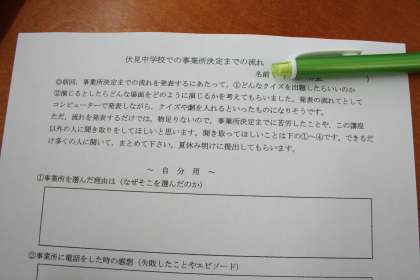 伏見中学校での事業所決定までの流れ
名前
)
◎前回、事業所決定までの流れを発表するにあたって、①どんなクイズを出題したらいいのか
②演じるとしたらどんな場面をどのように演じるかを考えてもらいました。発表の流れとして
コンピューターで発表しながら、クイズや劇を入れるといったものになりそうです。
ただ、流れを発表するだけでは、物足りないので、事業所決定までに苦労したことや、この講座
以外の人に聞き取りをしてほしいと思います。聞き取ってほしいことは下の①～④です。できるだ
け多くの人に聞いて、まとめて下さい。夏休み明けに提出してもらいます。
～ 自 分 用 ～
①事業所を選んだ理由は（なぜそこを選んだのか）
②事業所に電話をした時の感想（失敗したことやエピソード）